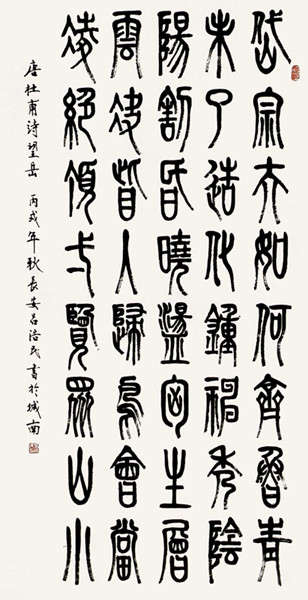 岱宗夫如何齊魯青
未了造化鍾神秀陰
陽割昏曉盪匈生層
雲決眥入歸鳥會當
凌絕頂弌覽眾山小
唐杜甫詩望岳 丙戌年秋長安呂浩民書於城南